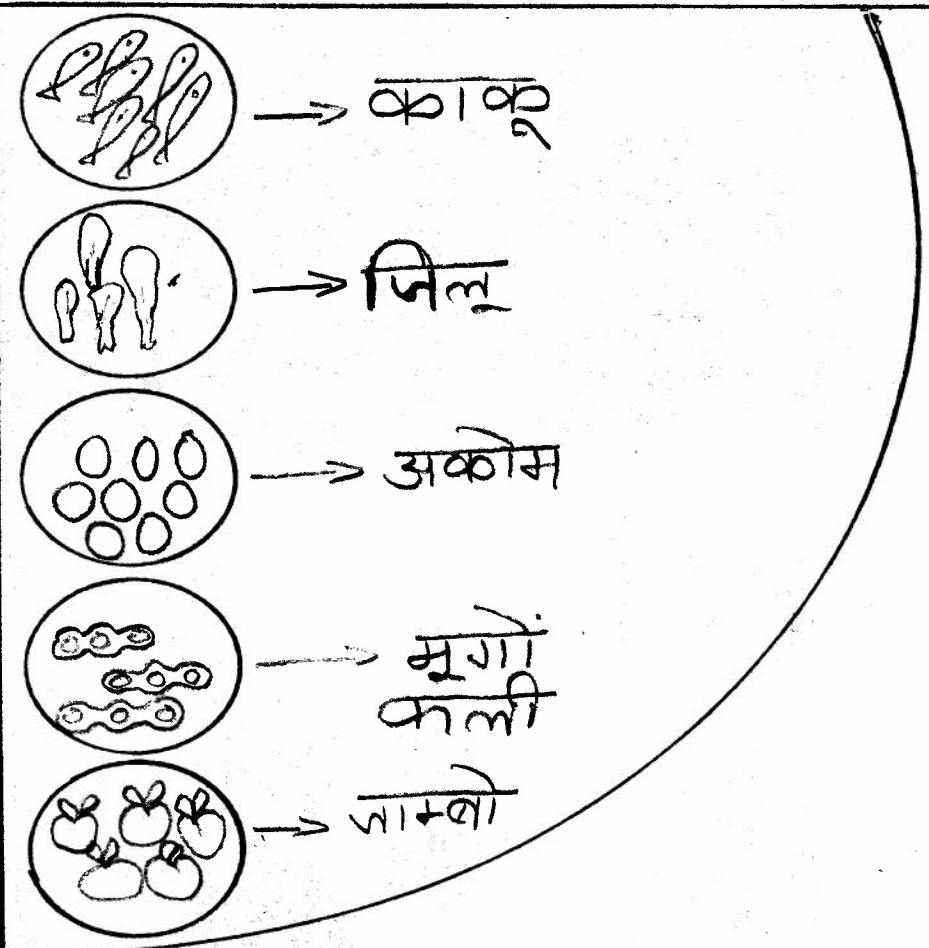 काकू
जिलू
अकोम
मूगों
कली
जाम्बो